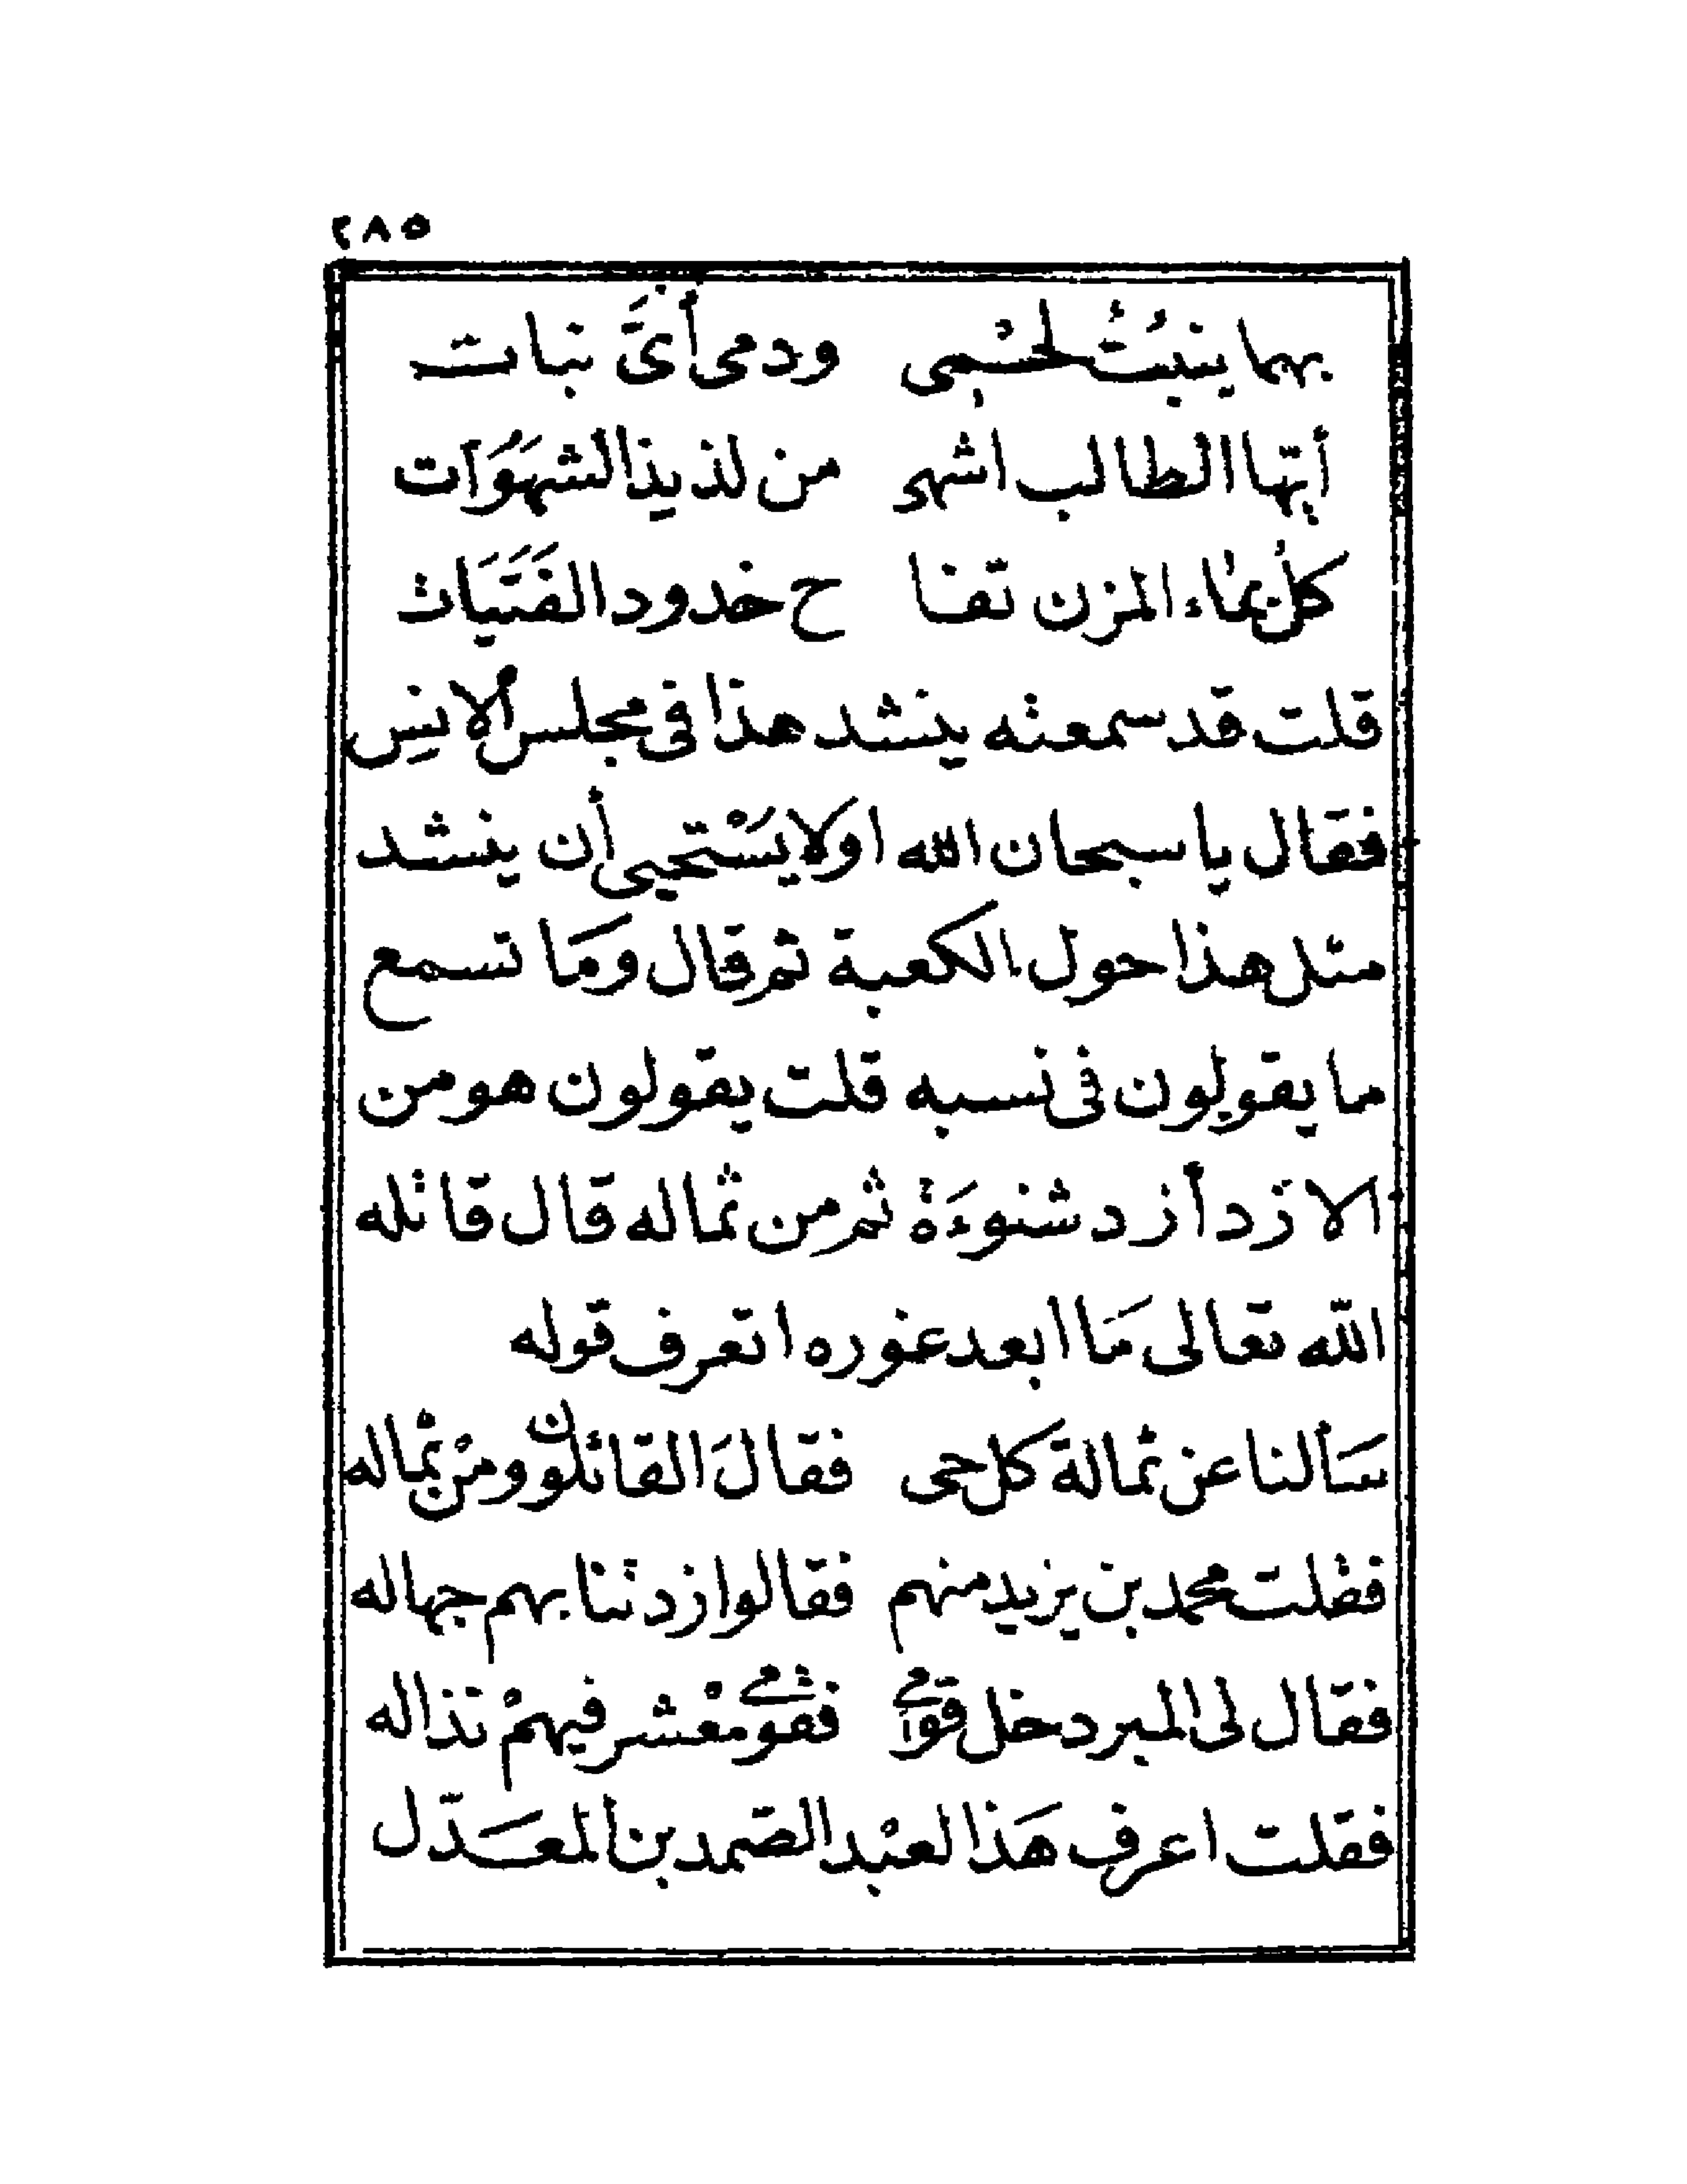 ٢٨٥
بهما ينبُتُ لحْمِى ودمى أىَّ نبات
أيّها الطالب اشهى من لذيذ الشهَوَات
كلْ بماء المزن تفا ح خدود الفَتَيَات
قلت قد سمعته ينشد هذا فى مجلس الانس
فقال يا سبحان الله او لا يَسْتحيى أن ينشد
مثل هذا حول الكعبة ثم قال ومَا تسمع
ما يقولون فى نسبه قلت يقولون هو من
الازد أزد شنوءَة ثم من ثماله قال قاتله
اللّه تعالى مَا ابعد غوره اتعرف قوله
سَألنا عن ثمالة كل حى فقالَ القائلون ومنْ ثماله
فقلت محمد بن يزيد منهم فقالوا زدتنا بهم جهاله
فقال لى المبرد خل قومى فقومى معْشر فيهمْ نذاله
فقلت اعرف هَذا لعبْد الصّمد بن المعَدّل